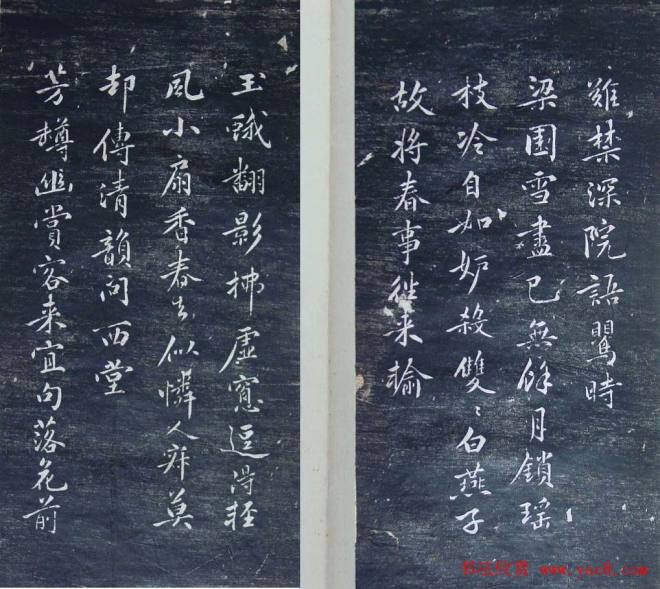 難禁深院語鶯時
梁園雪盡已無餘月鎖瑤
枝冷自如妒殺雙〻白燕子
故將春事從来輸
玉蛾翻影拂虛窗逗得輕
風小扇香春去似憐人寂莫
却傳清韻問西堂
芳樽幽賞客来宜句落花前
书法欣赏 www.yac8.com